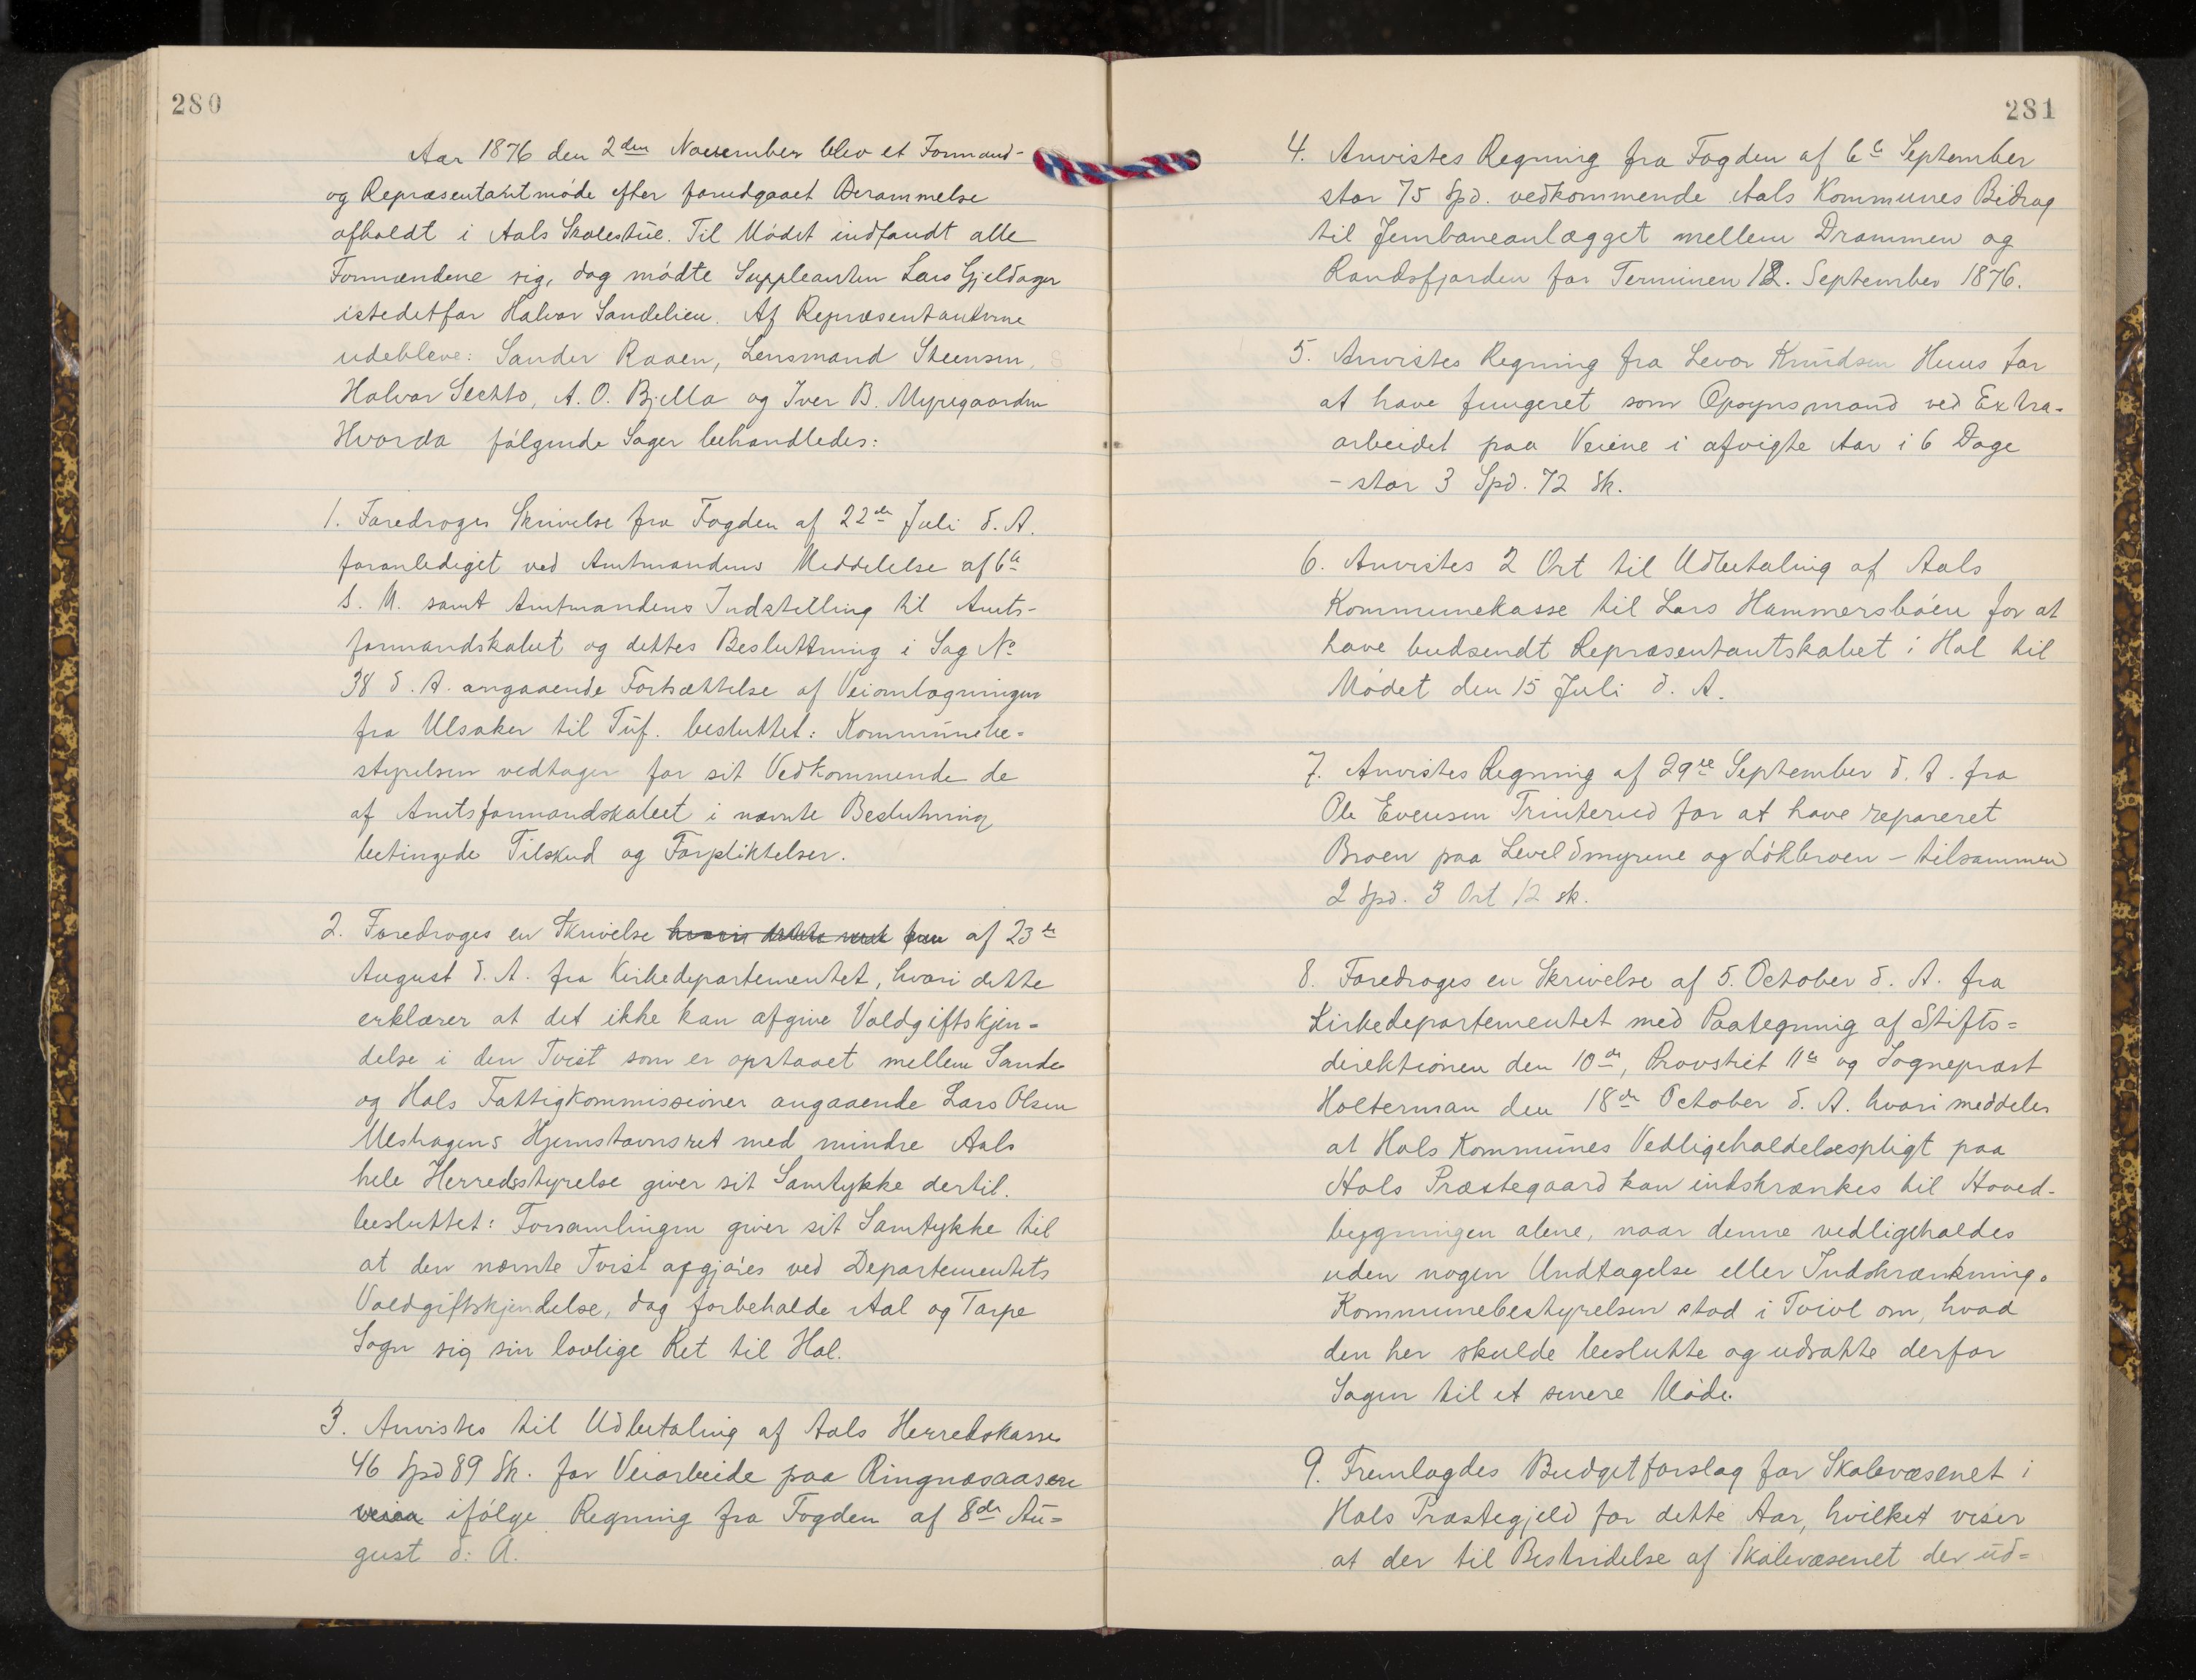 280
Aar 1876 den 2den November blev et Formand-
og Repræsentantmøde efter forudgaaet Berammelse
afholdt i Aals Skolestue. Til Mødet indfandt alle
Formændene sig, dog mødte Suppleanten Lars Gjeldager
istedetfor Halvor Sandelien. Af Repræsentanterne
udebleve: Sander Raaen, Lensmand Steensen,
Halvor Sechto, A. O. Bjella og Iver B. Myregaarden
Hvorda følgende Sager behandledes:
1. Foredroges Skrivelse fra Fogden af 22de Juli d. A.
foranlediget ved Amtmandens Meddelelse af 6te
s. M. samt Amtmandens Indstilling til Amts-
formandskabet og dettes Besluttning i Sag No
38 d. A. angaaende Fortsættelse af Veiomlægningen
fra Ulsaker til Tuf. besluttet: Kommunebe-
styrelsen vedtager for sit Vedkommende de
af Amtsformandskabet i nævnte Beslutning
betingede Tilskud og Forpliktelser.
2. Foredroges en Skrivelse af 23de
August d. A. fra Kirkedepartementet, hvori dette
erklærer at det ikke kan afgive Voldgiftskjen-
delse i den Tvist som er opstaaet mellem Sande
og Hols Fattigkommissioner angaaende Lars Olsen
Ulshagens Hjemstavnsret med mindre Aals
hele Herredsstyrelse giver sit Samtykke dertil.
besluttet: Forsamlingen giver sit Samtykke til
at den nævnte Tvist afgjøres ved Departementets
Voldgiftskjendelse, dog forbeholde Aal og Torpe
Sogn sig sin lovlige Ret til Hol.
3. Anvistes til Udbetaling af Aals Herredskasse
46 Spd 89 Sk. for Veiarbeide paa Ringnæsaasen
ifølge Regning fra Fogden af 8de Au-
gust d: A.
281
4. Anvistes Regning fra Fogden af 6te September
stor 75 Spd. vedkommende Aals Kommunes Bidrag
til Jernbaneanlægget mellem Drammen og
Randsfjorden for Terminen 12. September 1876.
5. Anvistes Regning fra Levor Knudsen Huus for
at have fungeret som Opsynsmand ved Extra-
arbeidet paa Veiene i afvigte Aar i 6 Dage
- stor 3 Spd. 72 Sk.
6. Anvistes 2 Ort til Udbetaling af Aals
Kommunekasse til Lars Hammersbøen for at
have budsendt Repræsentantskabet i Hol til
Mødet den 15 Juli d. A.
7. Anvistes Regning af 29de September d. A. fra
Ole Evensen Trinterud for at have repareret
Broen paa Leveldmyrene og Løkbroen - tilsammen
2 Spd. 3 Ort 12 sk.
8. Foredroges en Skrivelse af 5. October d. A. fra
Kirkedepartementet med Paategning af Stifts-
direktionen den 10de, Provstiet 11te og Sogneprest
Holterman den 18de October d. A. hvori meddeles
at Hols Kommunes Vedligeholdelsespligt paa
Hols Præstegaard kan indskrænkes til Hoved-
bygningen alene, naar denne vedligeholdes
uden nogen Undtagelse eller Indskrænkning.
Kommunebestyrelsen stod i Tvivl om, hvad
den her skulde beslutte og udsatte derfor
Sagen til et senere Møde.
9. Fremlagdes Budgetforslag for Skolevæsenet i
Hols Præstegjeld for dette Aar, hvilket viser
at der til Bestridelse af Skolevæsenet der ud-